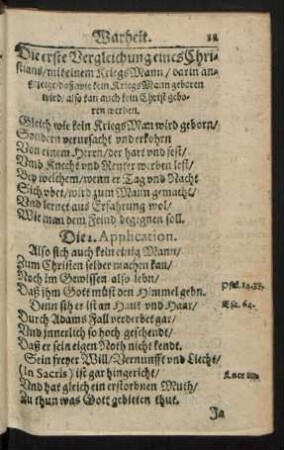 Warheit.
Die erste Vergleichung eines Chri-
stians/ mit einem Kriegs Mann/ darin an-
gezeigt/ daß wie kein Kriegs Mann geboren
wird/ also kan auch kein Christ gebo-
ren werden.
Gleich wie kein Kriegs Man wird geborn/
Sondern verursacht und erkohrn
Von einem Herrn/ der hart und fest/
Umb Knecht und Reuter werben lest/
Bey welchem/ wenn er Tag und Nacht
Sich vbet/ wird zum Mann gemacht/
Und lernet aus Erfahrung wol/
Wie man dem Feind begegnen soll.
Die 1. Application.
Also sich auch kein einig Mann/
Zum Christen selber machen kan/
Noch im Gewissen also lebn/
Psal. 14. 33.
Daß ihm Gott müst den Himmel gebn.
Denn sih er ist an Haut und Haar/
Esa. 64.
Durch Adams Fall verderbet gar/
Und innerlich so hoch geschendt/
Daß er sein eigen Noth nicht kendt.
Sein freyer Will/ Vernunfft und Liecht/
(in Sacris) ist gar hingericht/
Und hat gleich ein erstordnen Muth/
Zu thun was Gott gebieten thut.
Ja